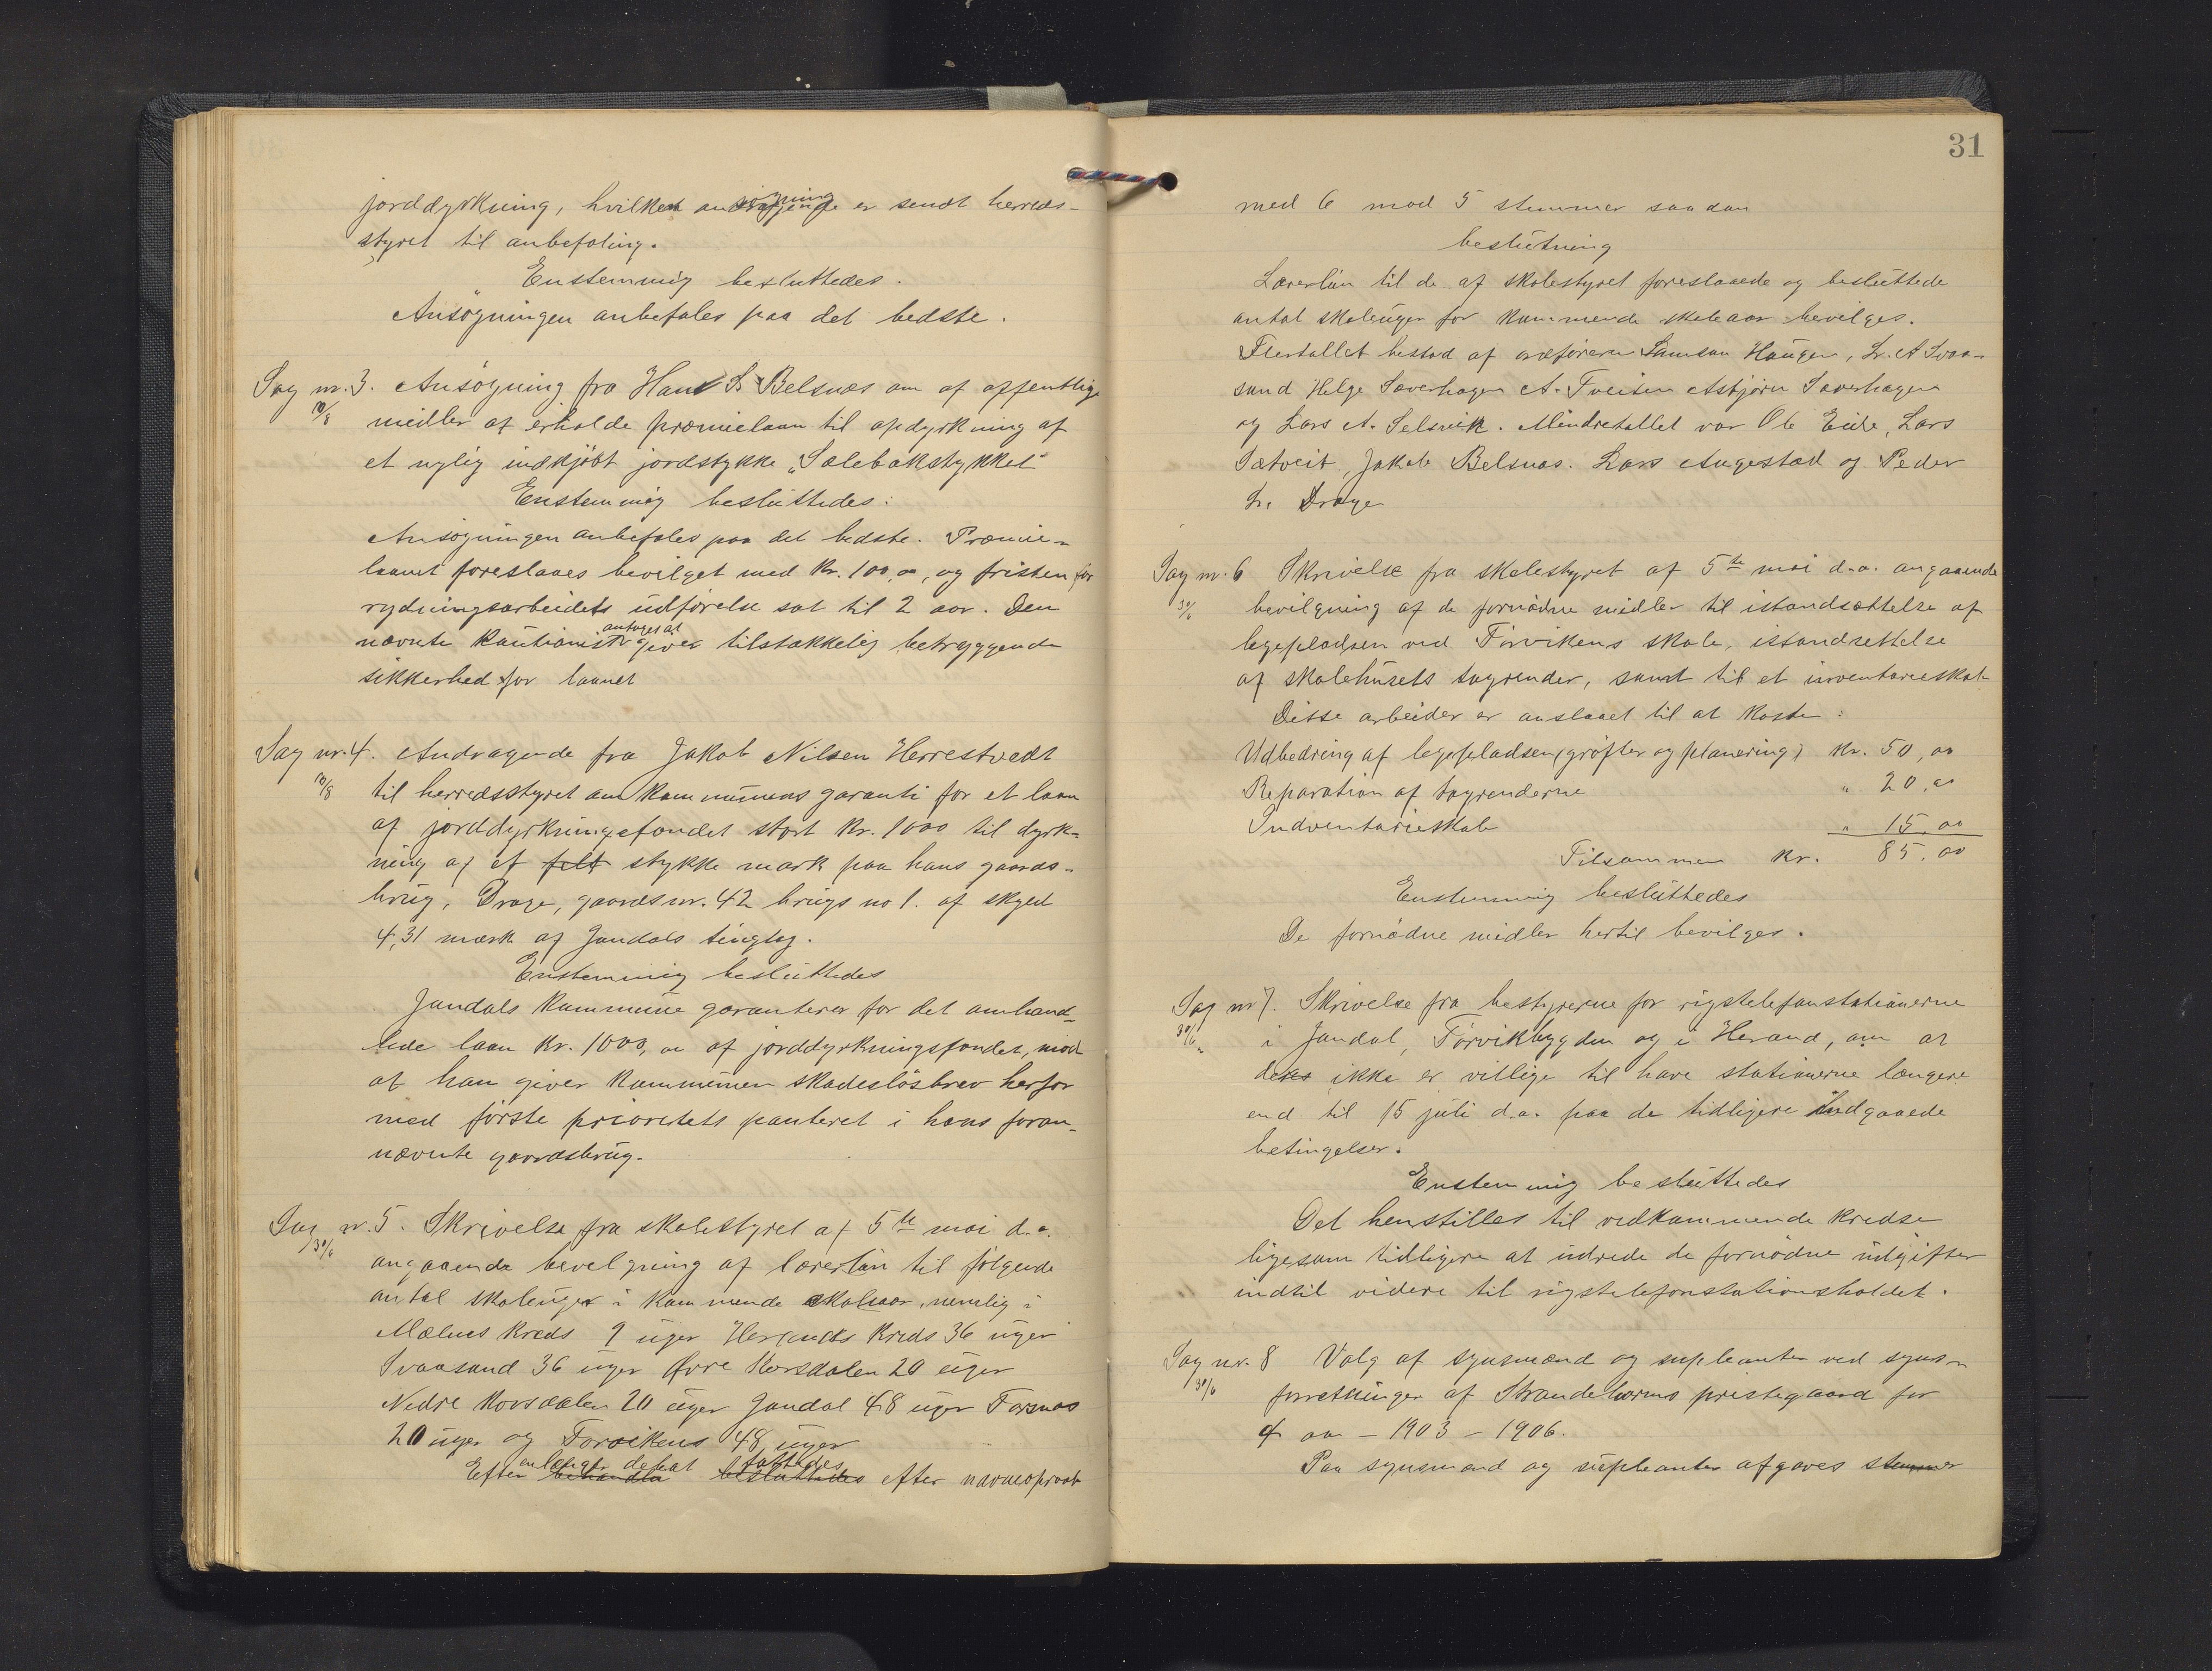 jorddyrkning, hvilken ansøgning er sendt herreds-
styret til anbefaling.
Enstemmig besluttedes.
Ansøgningen anbefales paa det bedste.
Sag nr. 3. Ansøgning fra Hans S. Belsnæs om af offentlige
midler at erholde præmielaan til opdyrkning af
et nylig indkjøbt jordstykke "Solebakstykket"
Enstemmig besluttedes:
Ansøgningen anbefales paa det bedste. Præmie-
laanet foreslaaes bevilget med Kr. 100,00, og fristen for
rydningsarbeidets udførelse sat til 2 aar. Den
nævnte kautionist antages at giver tilstækkelig betryggende
sikkerhed for laanet
Sag nr. 4. Andragende fra Jakob Nilsen Herrestvedt
til herredsstyret om kommunens garanti for et laan
af jorddyrkningsfondet stort Kr. 1000 til dyrk-
ning af et felt stykke mark paa hans gaards-
brug, Drage, gaardsnr. 42 brugs no 1. af skyld
4,31 mark af Jondals tinglag.
Enstemmig besluttedes
Jondals kommune garanterer for det omhand-
lede laan Kr. 1000,00 af jorddyrkningsfondet, mod
at han giver kommunen skadesløsbrev herfor
med første prioritets panteret i hans foran-
nævnte gaardsbrug.
Sag nr. 5. Skrivelse fra skolestyret af 5te mai d.a.
30/6 angaaende bevelgning af lærerløn til følgende
antal skoleuger i kommende skoleaar, nemlig i
Mælnes kreds 9 uger Herands kreds 36 uger
Svaasand 36 uger Øvre Korsdalen 20 uger
Nedre Korsdalen 20 uger Jondal 48 uger Torsnæs
20 uger og Torvikens 48 uger
en længer debat fattedes
Efter behandla besluttedes efter navneopraab
31
med 6 mod 5 stemmer saadan
beslutning
Lærerløn til de af skolestyret foreslaaede og besluttede
antal skoleuger for kommende skoleaar bevilges.
Flertallet bestod af ordfører Samson Haugen, Lr. A Svaa-
sand Helge Saverhagen A. Tveiten Asbjørn Saverhagen
og Lars A. Selsvik. Mindretallet var Ole Eide, Lars
Sætveit, Jakob Belsnæs. Lars Augestad og Peder
L. Drage
Sag nr. 6 Skrivelse fra skolestyret af 5te mai d.a. angaaende
30/6 bevilgning af de fornødne midler til istandsættelse af
legepladsen ved Tørvikens skole, istandsettelse
af skolehusets tagrender, samt til et inventarieskab
Disse arbeider er anslaaet til at koste:
Udbedring af legepladsen (grøfter og planering) Kr. 50,00
Reparation af tagrenderne " 20,00
Indventarieskab " 15,00
Tilsammen Kr. 85,00
Enstemmig besluttedes
De fornødne midler hertil bevilges.
Sag nr 7. Skrivelse fra bestyrerne for rigstelefonstationerne
30/6 i Jondal, Tørvikbygden og i Herand, om at
de ikke er villige til have stationerne længere
end til 15 juli d.a. paa de tidligere indgaaede
betingelser.
Enstemmig besluttedes
Det henstilles til vedkommende kredse
ligesom tidligere at udrede de fornødne udgifter
indtil videre til rigstelefonstationsholdet.
Sag nr. 8 Valg af synsmænd og supleanter ved syns-
30/6 forretninger af Strandebarms præstegaard for
4 aar - 1903 - 1906.
Paa synsmænd og supleanter afgaves stemmer